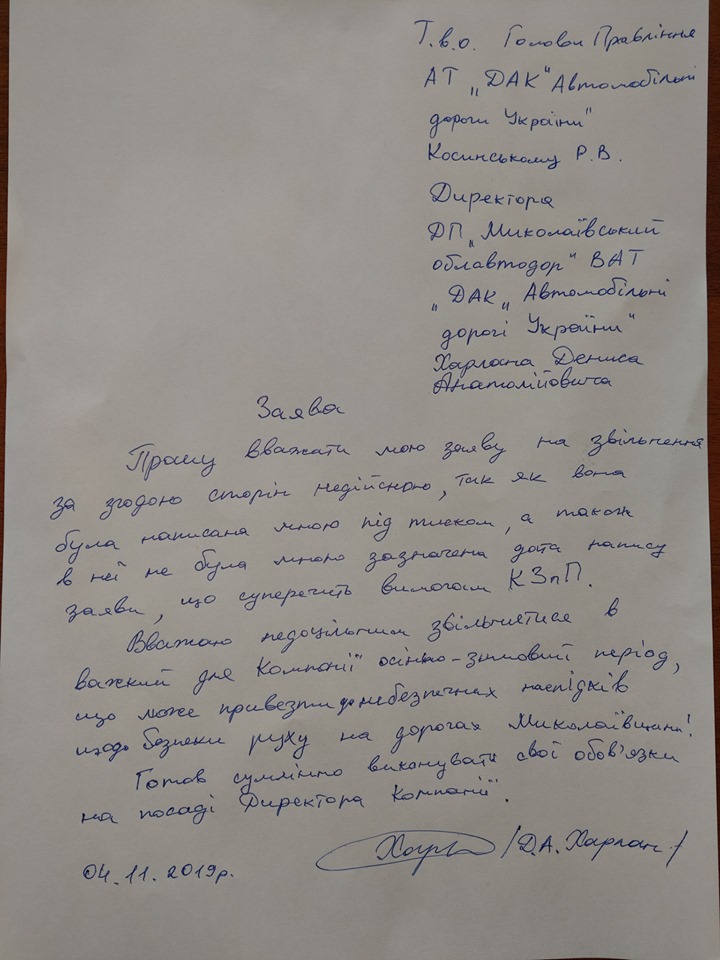 Т.в.о. Голови Правління
АТ „ДАК "Автомобільні
дороги України"
Косинському Р.В.
Директора
ДП „Миколаївський
облавтодор" ВАТ
„ДАК „ Автомобільні
дорогі України"
Харлана Дениса
Анатолійовича
Заява
Прошу вважати мою заяву на звільнення
за згодою сторін недійсною, так як вона
була написана мною під тиском, а також
в неї не була мною зазначена дата напису
заяви, що суперечить вимогам КЗпП.
Вважаю недоцільним звільнятися в
важкий для Компанії осіньо-зимовий період,
що може привезти до небезпечних наслідків
щодо безпеки руху на дорогах Миколаївщині!
Готов суммінно виконувати свої обов'язки
на посаді Директора Компанії.
04.11.2019р. /Д.А. Харлан/